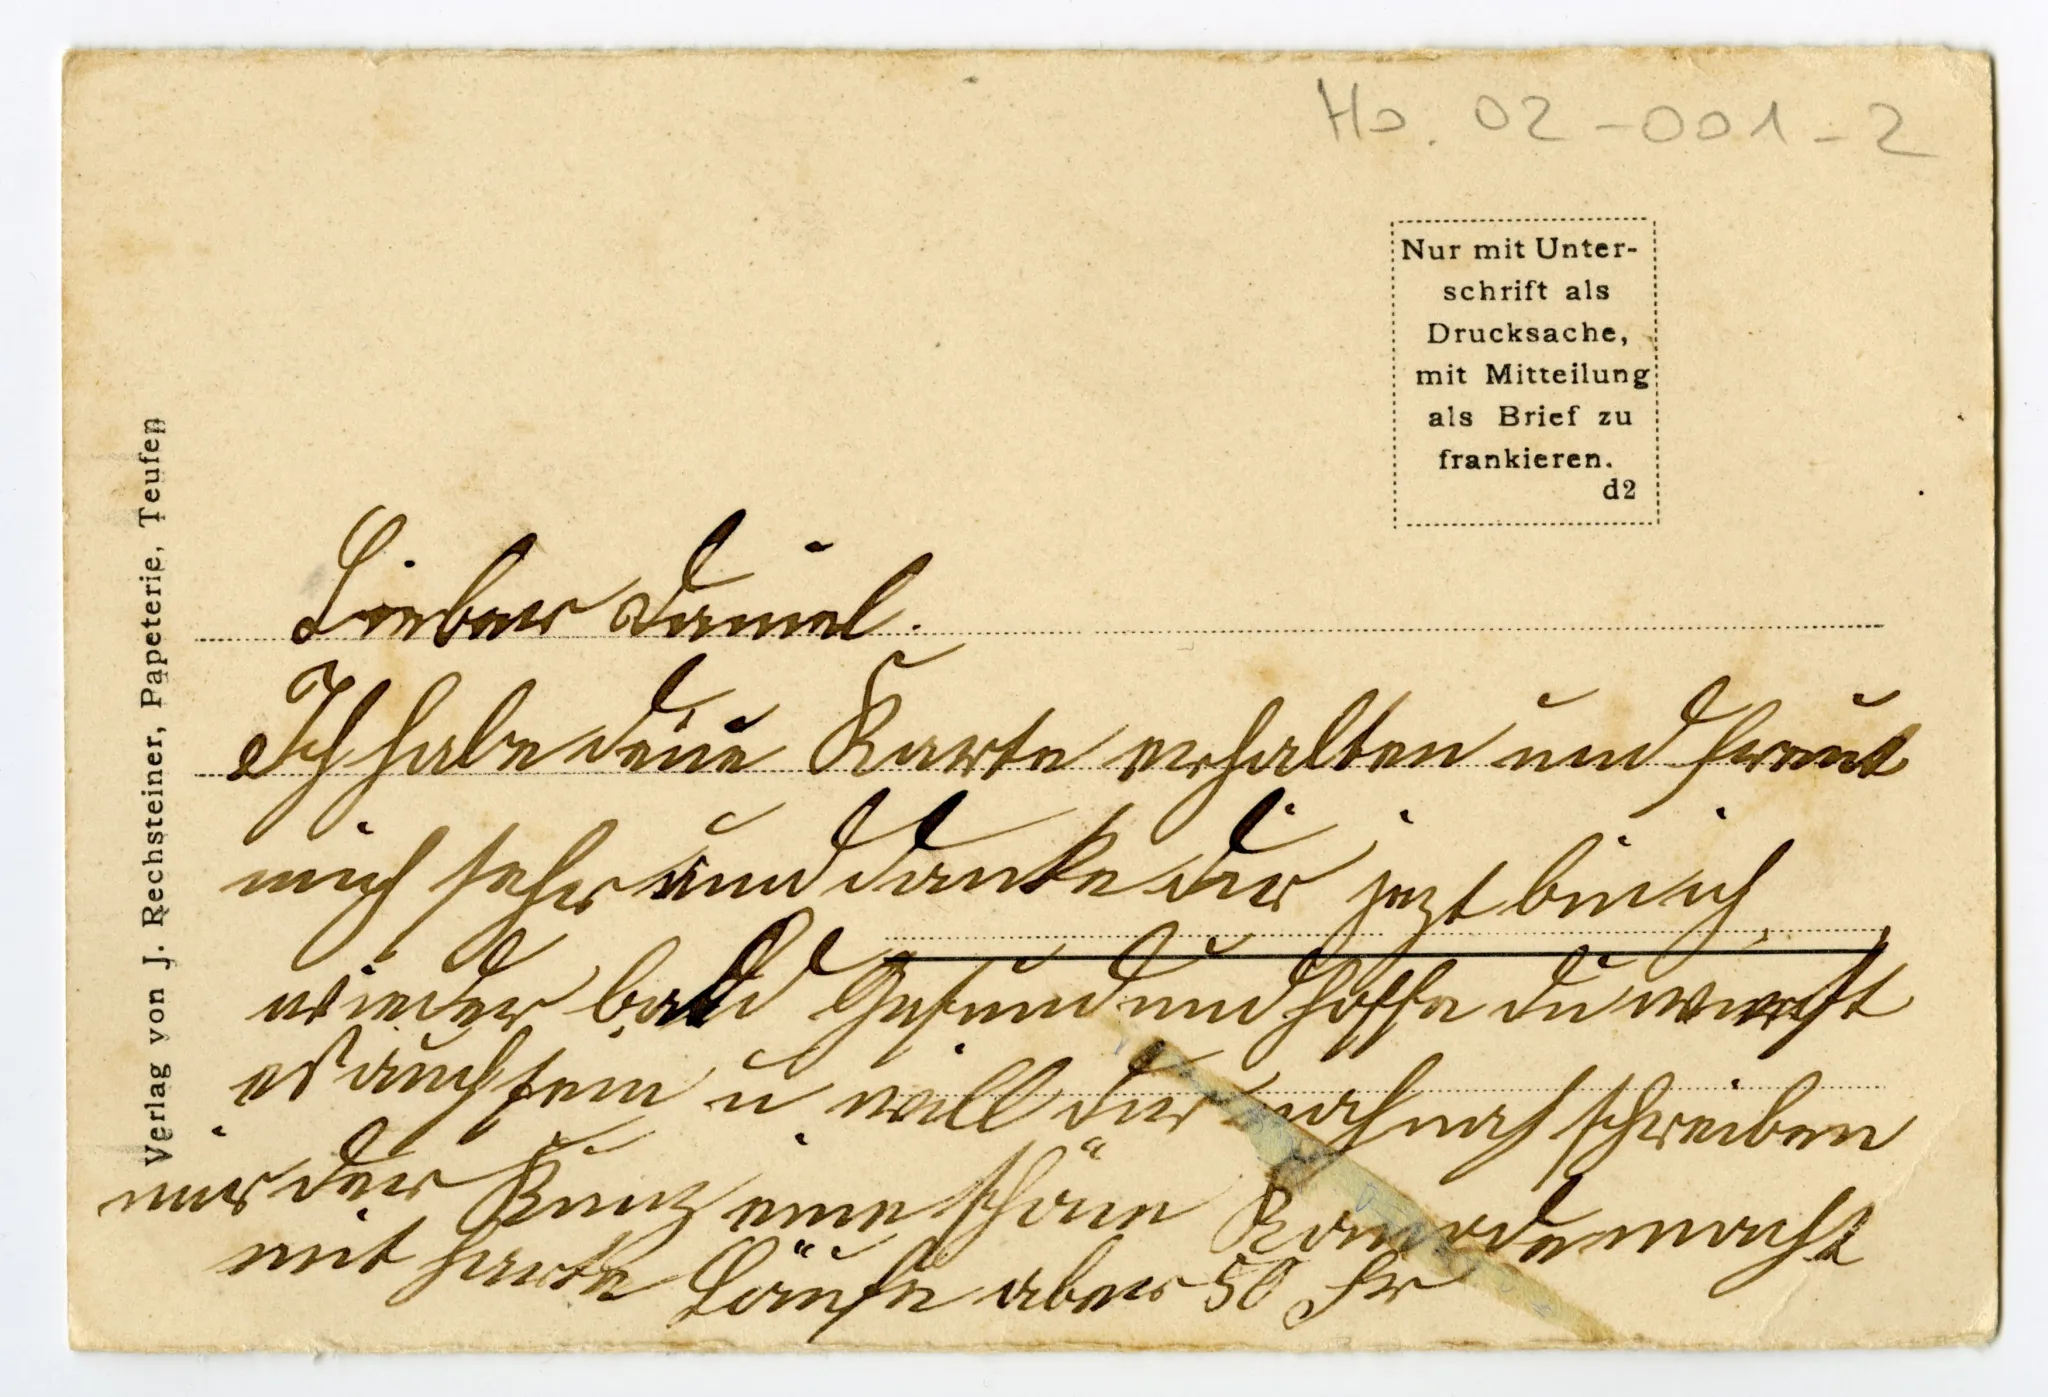 Ho. 02-001-2
Nur mit Unter-
schrift als
Drucksache,
mit Mitteilung
als Brief zu
frankieren.
d2
Verlag von J. Rechsteiner, Papeterie, Teufen
Lieber Daniel.
Ich habe deine Karte erhalten und freut
mich sehr und danke dir jezt bin ich
wieder bald Gesund und hoffe du wirst
es auch sein u will dir schreiben
mir der Kunz eine schöne macht
mit harte Läufe aber 50 Fr